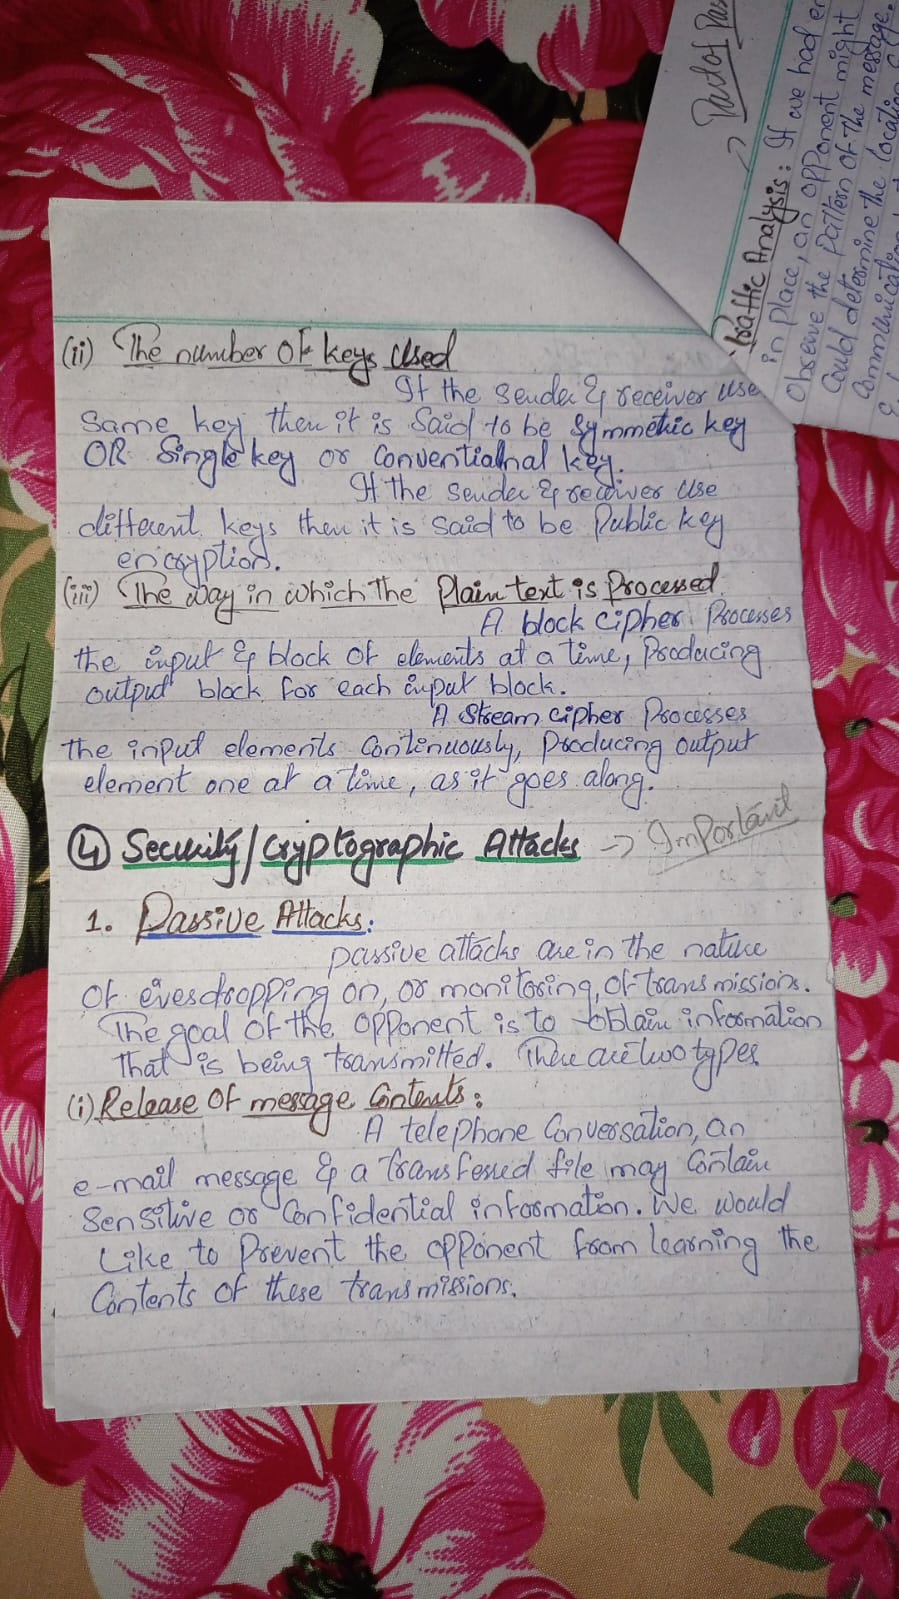 (ii) The number of keys used
If the sender & receiver use
Same key then it is Said to be Symmetric key
OR Single key or Conventiaṅal key.
If the sender & receiver use
different keys then it is said to be Public key
encryption.
(iii) The way in which the Plain text is Processed.
A block cipher Processes
the input & block of elements at a time, Producing
output block for each input block.
A Stream cipher Processes
the input elements Continuously, Producing output
element one at a time, as it goes along.
④ Security/Cryptographic Attacks → Important
1. Passive Attacks:
passive attacks are in the nature
of evesdropping on, or monitoring, of transmissions.
The goal of the opponent is to obtain information
That is being transmitted. There are two types
(i) Release Of message Contents:
A telephone Conversation, an
e-mail message & a Transferred file may Contain
Sensitive or Confidential information. We would
Like to Prevent the opponent from learning the
Contents of these transmissions.
Traffic Analysis: If we had
in place, an opponent might
Observe the Pattern of the message.
Could determine the location